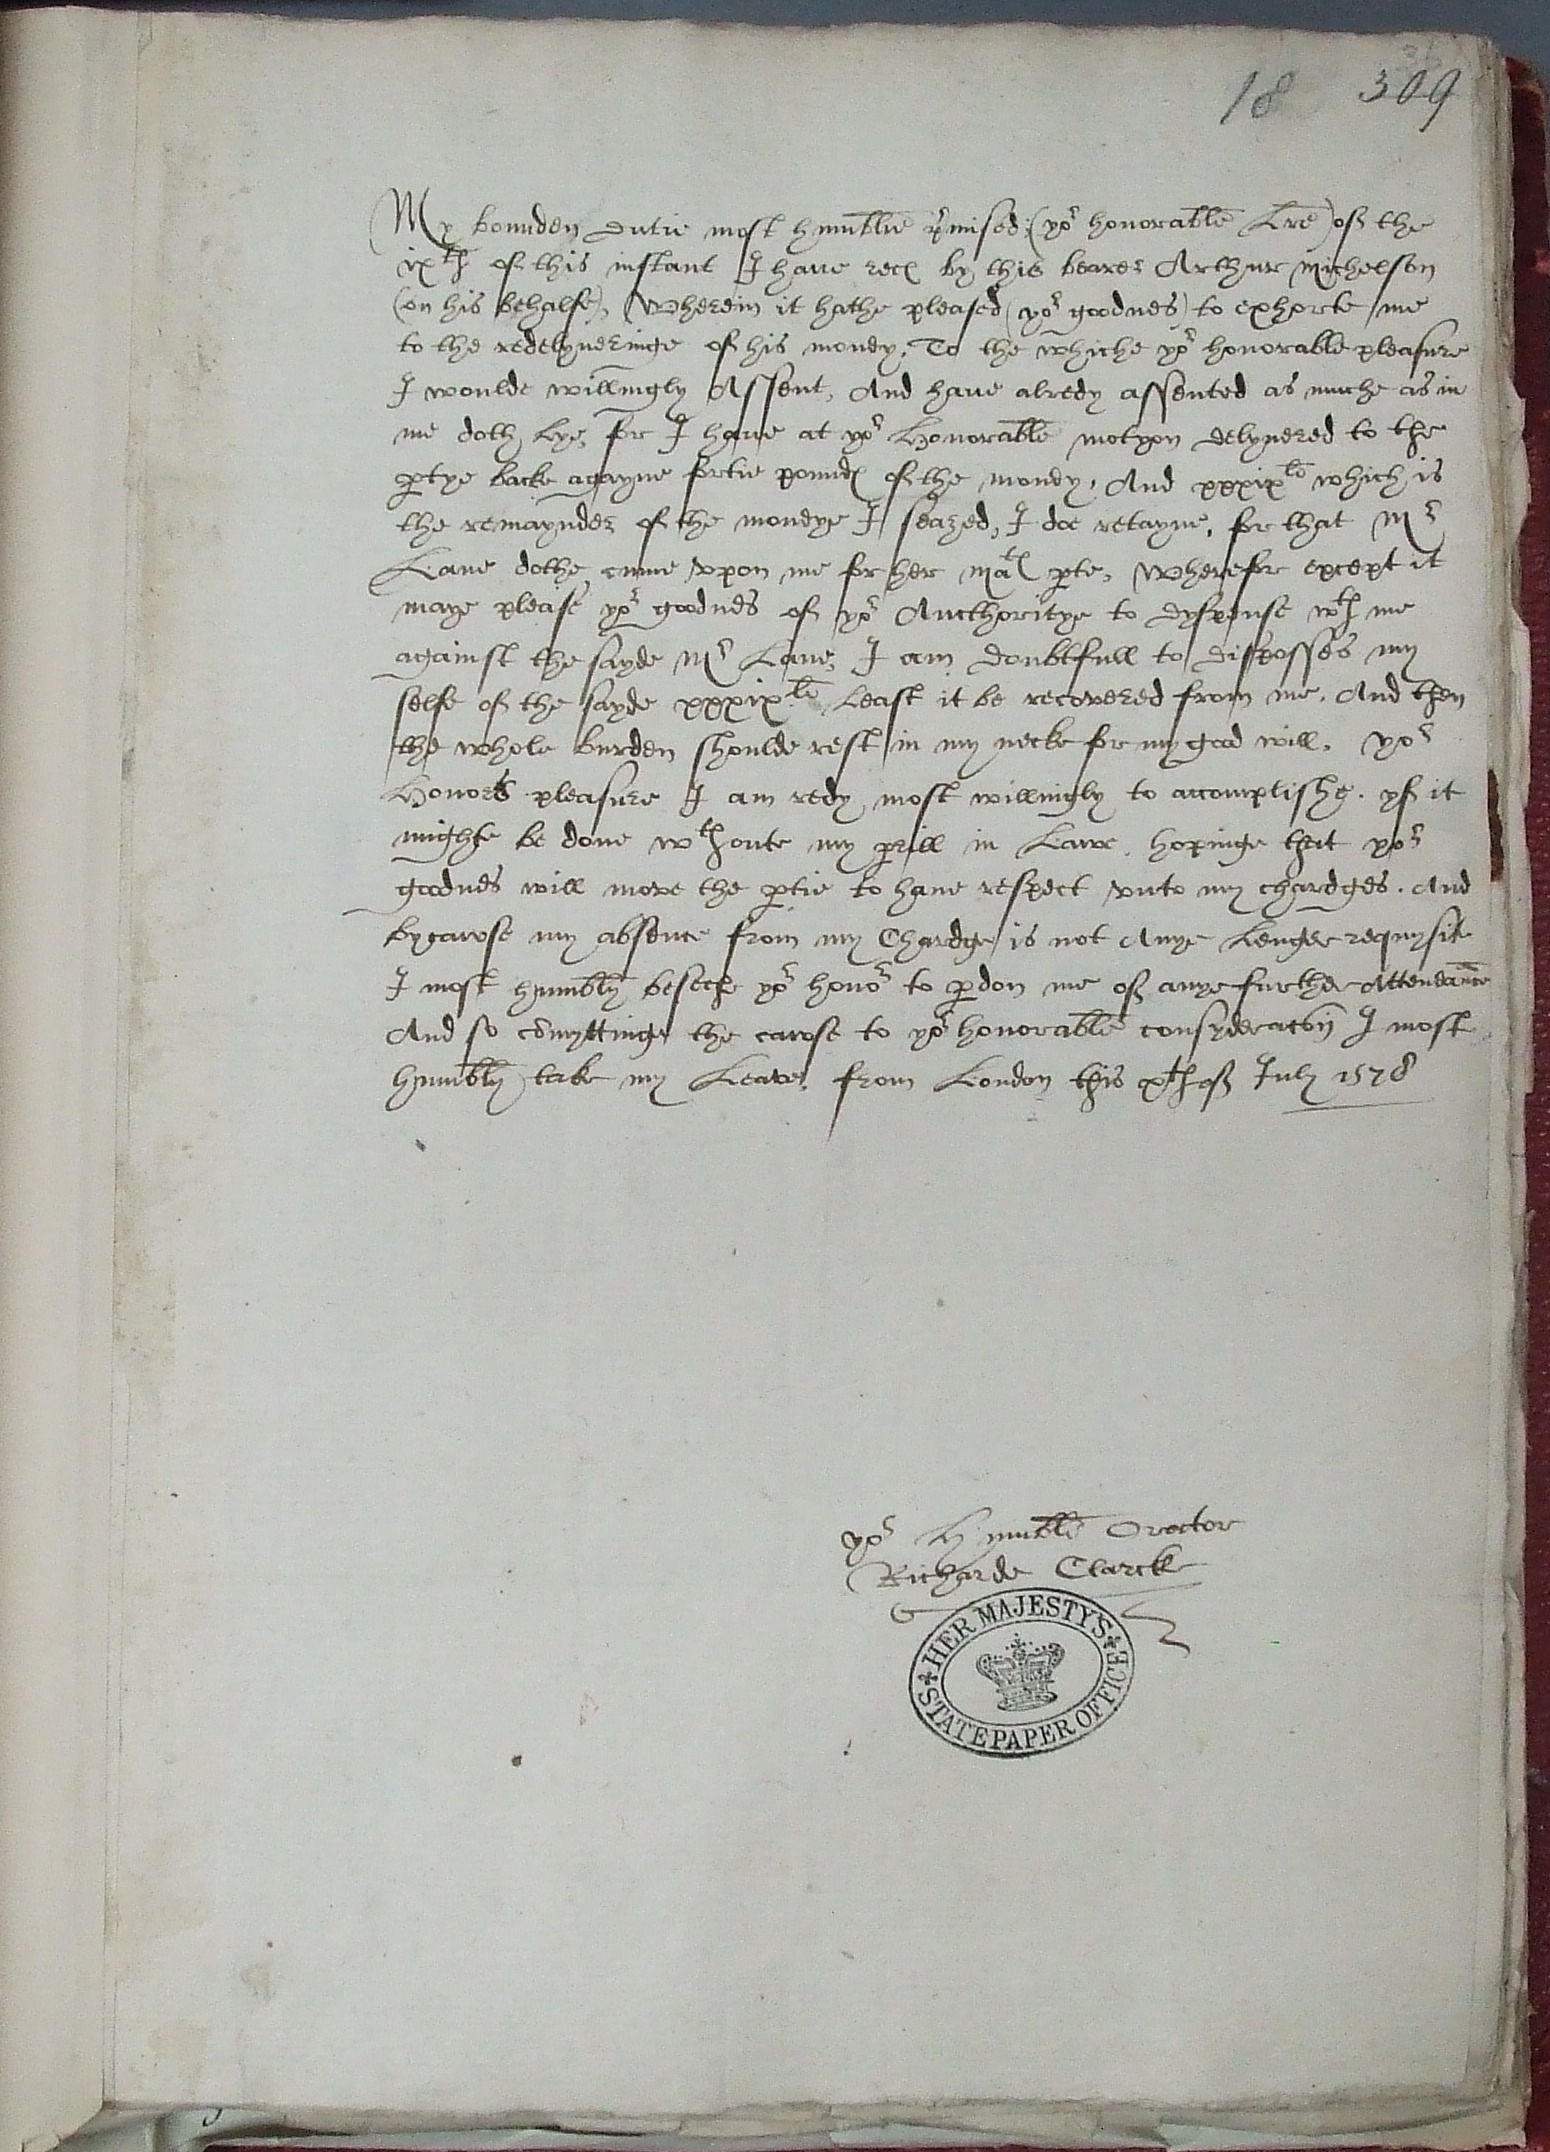 18 309
My bounden dutie most humblie p̲rmised (yor honorable Lre) of the
ixth of this instant I haue recd by this bearer Arthur Michelson
(on his behalfe), Wherein it hathe pleased (yor goodnes) to exhorte me
to the redelyueringe of his money. To the whiche yor honorable pleasure
I woulde willingly Assent, And haue alredy assented as muche as in
me doth lye, for I haue at yor Honorable motyon delyuered to the
ptye backe agayne fortie pounds of the money, And xxxixle which is
the remaynder of the moneye I seazed, I doe retayne, for that Mr
Lane dothe cume vpon me for her mats pte, Wherefor except it
maye please yor goodnes of yor Aucthoritye to dyspense wth me
against the sayde Mr Lane, I am doubtfull to disposses my
selfe of the sayde xxxixle Least it be recovered from me. And then
the whole burden shoulde rest in my necke for my good will. yor
Honors pleasure I am redy most willingly to accomplishe. yf it
mighte be done wthoute my perill in Lawe. hopinge that yor
goodnes will move the ptie to haue respect vnto my chardges. And
bycawse my absence from my Chardge is not Anye Lenger requysite
I most humbly beseche yor honor to pdon me of anye further Attendance
And so comyttinge the cawse to yor honorable consyderacon I most
humbly take my Leave. from London this xth of July 1578
yor Humble Orator
Richarde Clarcke
HER MAJESTY'S
STATE PAPER OFFICE